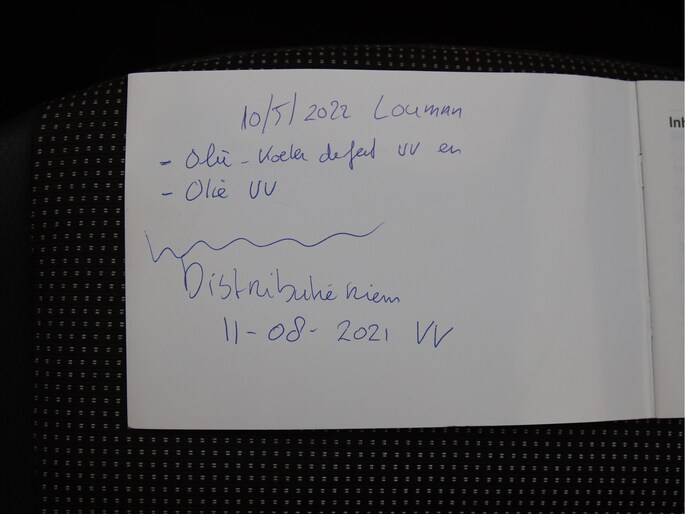 10/5/2022 Louman
- Olie - Koeler defect VV en
- Olie VV
Distributieriem
11-08-2021 VV
Inh